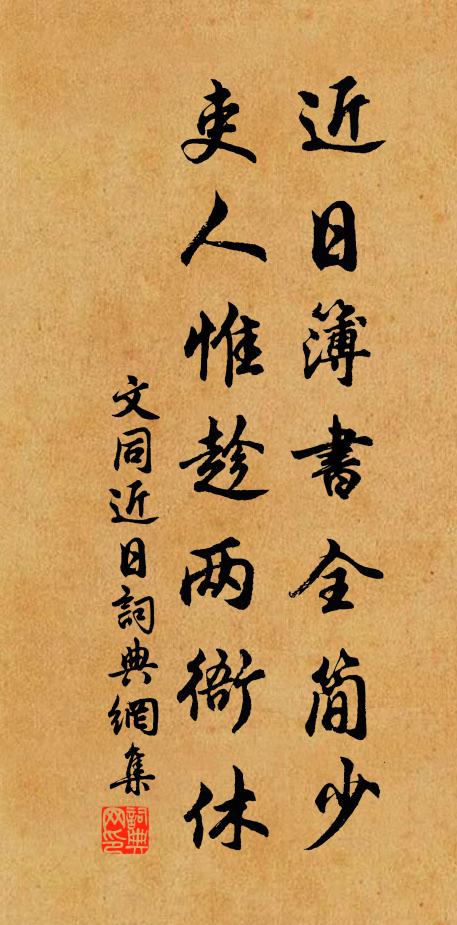 近日簿書全简少
吏人惟趁两衙休
文同近日詞典網集
詞典网印